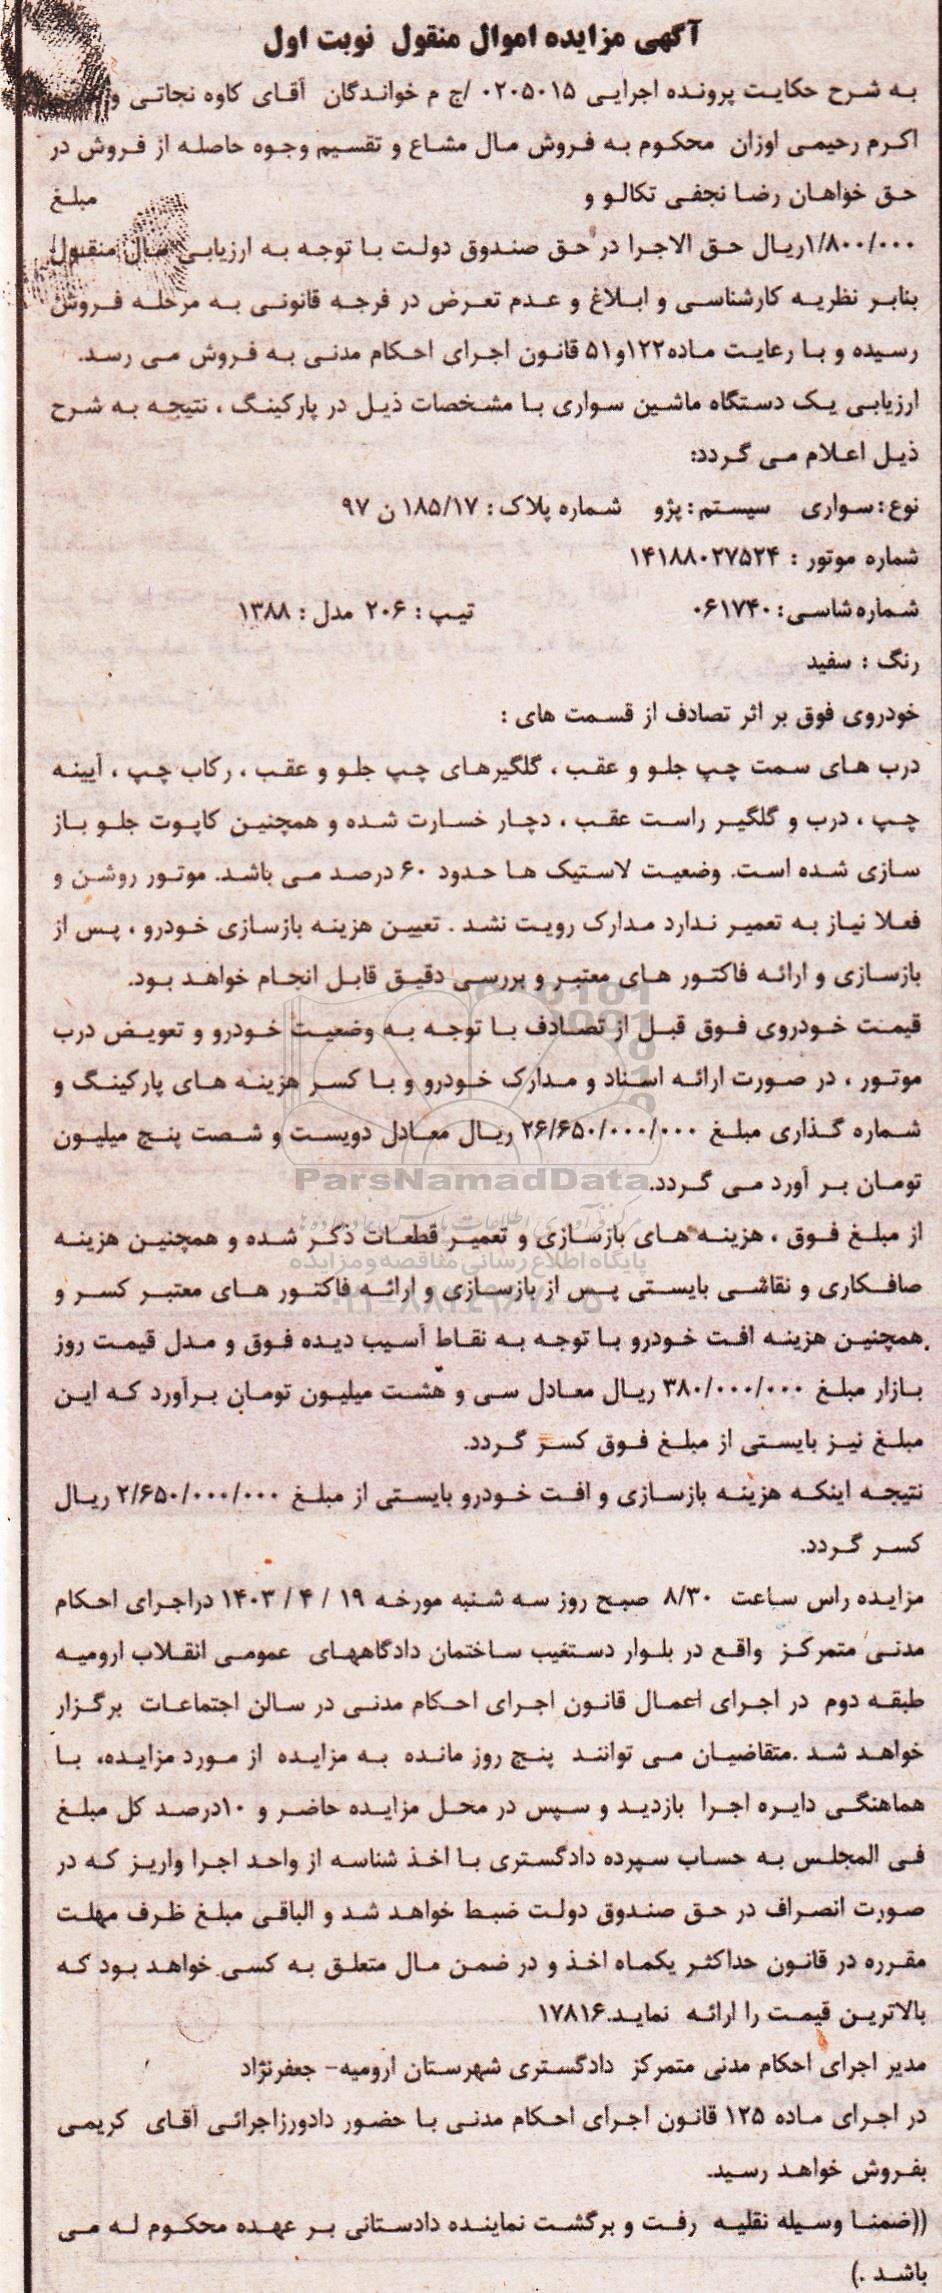 آگهی مزایده اموال منقول نوبت اول
به شرح حکایت پرونده اجرایی ۰۲۰۵۰۱۵ /ج م خواندگان آقای کاوه نجاتی و
اکرم رحیمی اوزان محکوم به فروش مال مشاع و تقسیم وجوه حاصله از فروش در
حق خواهان رضا نجفی تکالو و مبلغ
۱/۸۰۰/۰۰۰ریال حق الاجرا در حق صندوق دولت با توجه به ارزیابی مال منقول
بنابر نظریه کارشناسی و ابلاغ و عدم تعرض در فرجه قانونی به مرحله فروش
رسیده و با رعایت ماده۱۲۲و۵۱ قانون اجرای احکام مدنی به فروش می رسد.
ارزیابی یک دستگاه ماشین سواری با مشخصات ذیل در پارکینگ ، نتیجه به شرح
ذیل اعلام می گردد:
نوع: سواری سیستم: پژو شماره پلاک : ۱۸۵/۱۷ ن ۹۷
شماره موتور : ۱۴۱۸۸۰۲۷۵۲۴
شماره شاسی: ۰۶۱۷۴۰ تیپ : ۲۰۶ مدل : ۱۳۸۸
رنگ : سفید
خودروی فوق بر اثر تصادف از قسمت های :
درب های سمت چپ جلو و عقب ، گلگیرهای چپ جلو و عقب ، رکاب چپ ، آیینه
چپ ، درب و گلگیر راست عقب ، دچار خسارت شده و همچنین کاپوت جلو باز
سازی شده است. وضعیت لاستیک ها حدود ۶۰ درصد می باشد. موتور روشن و
فعلا نیاز به تعمیر ندارد مدارک رویت نشد . تعیین هزینه بازسازی خودرو ، پس از
بازسازی و ارائه فاکتور های معتبر و بررسی دقیق قابل انجام خواهد بود.
قیمت خودروی فوق قبل از تصادف با توجه به وضعیت خودرو و تعویض درب
موتور ، در صورت ارائه اسناد و مدارک خودرو و با کسر هزینه های پارکینگ و
شماره گذاری مبلغ ۲۶/۶۵۰/۰۰۰/۰۰۰ ریال معادل دویست و شصت پنج میلیون
تومان بر آورد می گردد.
از مبلغ فوق ، هزینه های بازسازی و تعمیر قطعات ذکر شده و همچنین هزینه
صافکاری و نقاشی بایستی پس از بازسازی و ارائه فاکتور های معتبر کسر و
همچنین هزینه افت خودرو با توجه به نقاط آسیب دیده فوق و مدل قیمت روز
بازار مبلغ ۳۸۰/۰۰۰/۰۰۰ ریال معادل سی و هشت میلیون تومان برآورد که این
مبلغ نیز بایستی از مبلغ فوق کسر گردد.
نتیجه اینکه هزینه بازسازی و افت خودرو بایستی از مبلغ ۲/۶۵۰/۰۰۰/۰۰۰ ریال
کسر گردد.
مزایده راس ساعت ۸/۳۰ صبح روز سه شنبه مورخه ۱۹ / ۴ / ۱۴۰۳ دراجرای احکام
مدنی متمرکز واقع در بلوار دستغیب ساختمان دادگاههای عمومی انقلاب ارومیه
طبقه دوم در اجرای اعمال قانون اجرای احکام مدنی در سالن اجتماعات برگزار
خواهد شد .متقاضیان می توانند پنج روز مانده به مزایده از مورد مزایده، با
هماهنگی دایره اجرا بازدید و سپس در محل مزایده حاضر و ۱۰درصد کل مبلغ
فی المجلس به حساب سپرده دادگستری با اخذ شناسه از واحد اجرا واریز که در
صورت انصراف در حق صندوق دولت ضبط خواهد شد و الباقی مبلغ ظرف مهلت
مقرره در قانون حداکثر یکماه اخذ و در ضمن مال متعلق به کسی خواهد بود که
بالاترین قیمت را ارائه نماید.۱۷۸۱۶
مدیر اجرای احکام مدنی متمرکز دادگستری شهرستان ارومیه- جعفرنژاد
در اجرای ماده ۱۲۵ قانون اجرای احکام مدنی با حضور دادورزاجرائی آقای کریمی
بفروش خواهد رسید.
((ضمنا وسیله نقلیه رفت و برگشت نماینده دادستانی بر عهده محکوم له می
باشد .)
ParsNamadData
پایگاه اطلاع رسانی مناقصه و مزایده